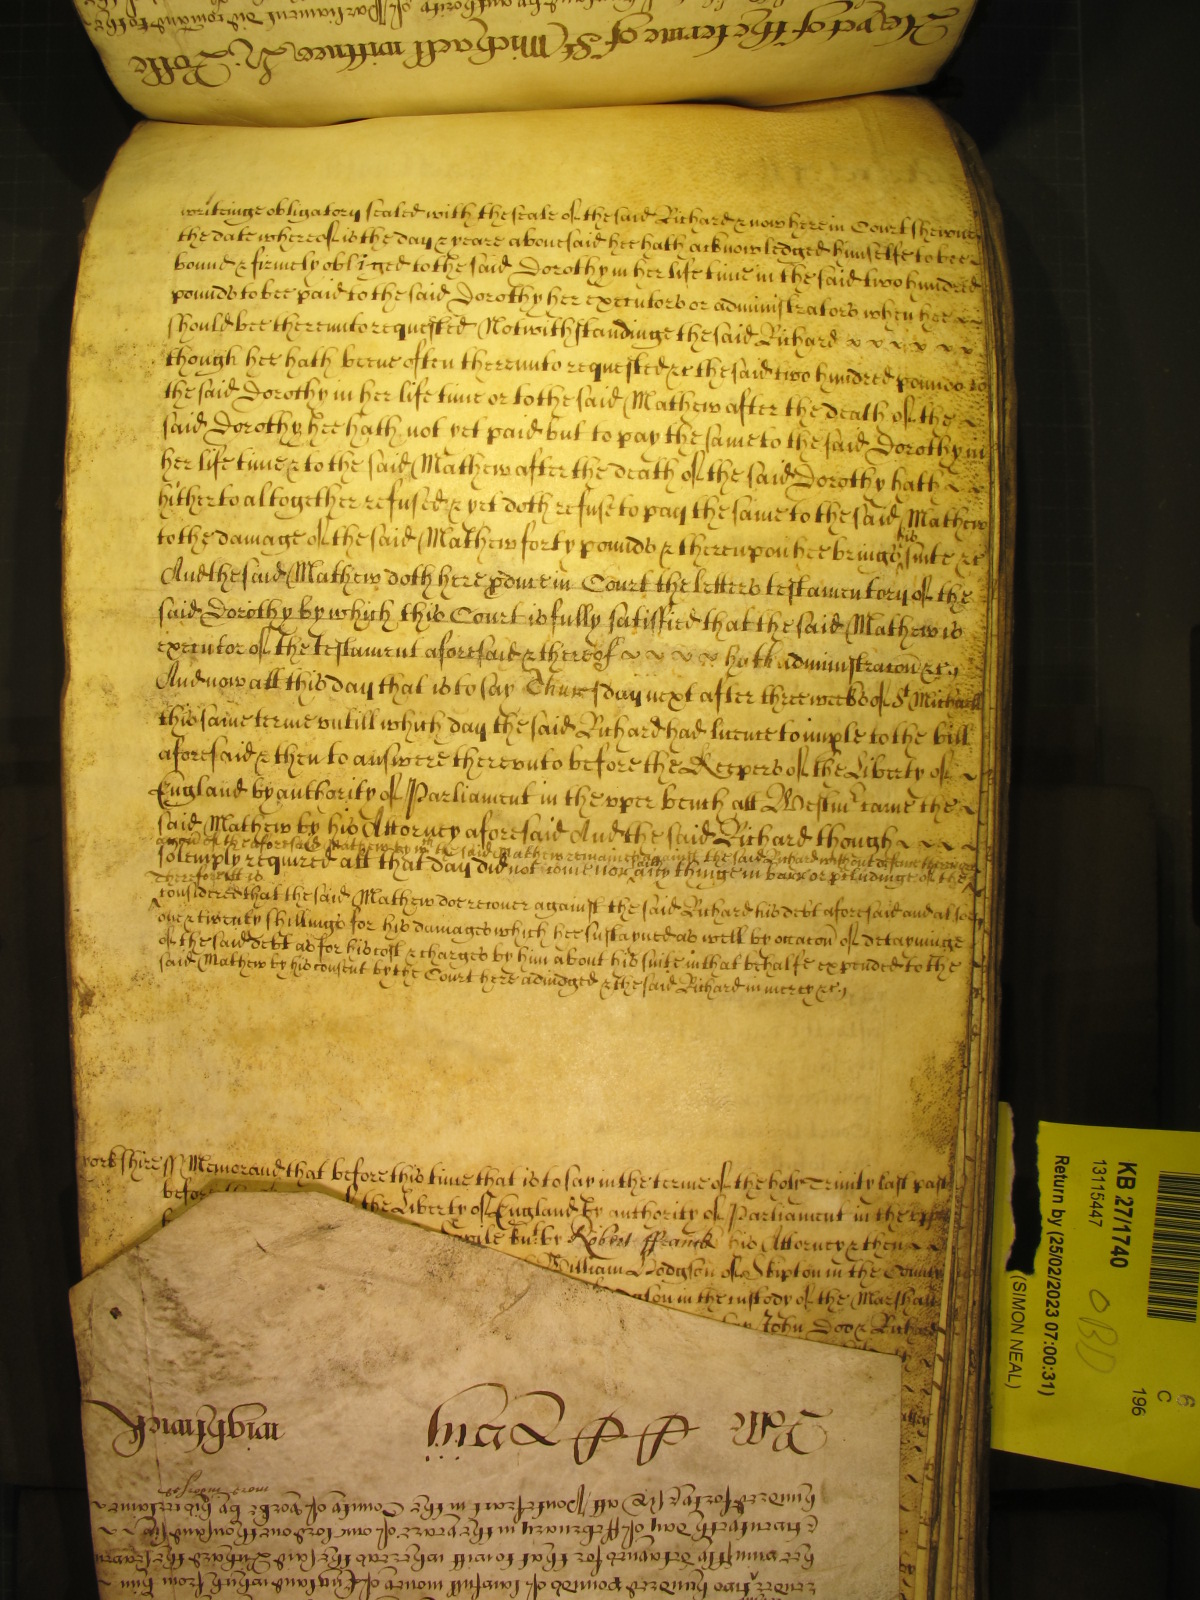 Keepers of the terme of St Michaell witnes H: Rolle
writeinge obligatory sealed with the seale of the said Richard & now here in Court shewne
the date whereof is the day & yeare abovesaid hee hath acknowledged himselfe to bee
bound & firmely obliged to the said Dorothy in her life time in the said two hundred
pounds to bee paid to the said Dorothy her executors or administrators when hee
should bee thereunto requested Notwithstandinge the said Richard
though hee hath beene often thereunto requested &c the said two hundred pounds to
the said Dorothy in her life time or to the said Mathew after the death of the
said Dorothy hee hath not yet paid but to pay the same to the said Dorothy in
her life time & to the said Mathew after the death of the said Dorothy hath
hitherto altogether refused & yet doth refuse to pay the same to the said Mathew
to the damage of the said Mathew forty pounds & thereupon hee brings his suite &c
And the said Mathew doth here p̄duce in Court the letters testamentory of the
said Dorothy by which this Court is fully satisfied that the said Mathew is
executor of the testament aforesaid & thereof hath administraton &c
And now att this day that is to say Thursday next after three weeks of St Michaell
this same terme untill which day the said Richard had licence to imple to the bill
aforesaid & then to answere thereunto before the Keepers of the Liberty of
England by authority of Parliament in the upper bench att Westmr came the
said Mathew by his Attorney aforesaid And the said Richard though
solemply required att that day did not come nor saith any thinge in barr or p̄cludinge of the
accon of the aforesaid Mathew by wch the said Mathew remaineth against the said Richard without defence
Therefore it is
considered that the said Mathew doe recover against the said Richard his debt aforesaid and alsoe
twenty shillings for his damages which hee sustayned as well by occacon of detayninge
of the said debt as for his cost & charges by him about his suite in that behalfe expended to the
said Mathew by his consent by the Court here adiudged & the said Richard in mercy &c
Yorkshire ss Memorand that before this time that is to say in the terme of the holy Trinity last past
before the Liberty of England by authority of Parliament in the upp
knt by Robert Ffranck his Attorney & then
William Hodgson of Skipton in the County
in the custody of the Marshall
John Doo & Richard
Rolle Wightwick
hundred forty & six att Pontefract in the County of Yorke by his
twentyeth day of Ffebruary in the yeare of our lord one thousand six
hee uniustly detayneth for that to witt whereas the said Richard the
render two hundred pounds of lawfull money of England which from him
KB 27/1740
13115447
Return by (25/02/2023 07:00:31)
(SIMON NEAL)
OBD
6
C
196